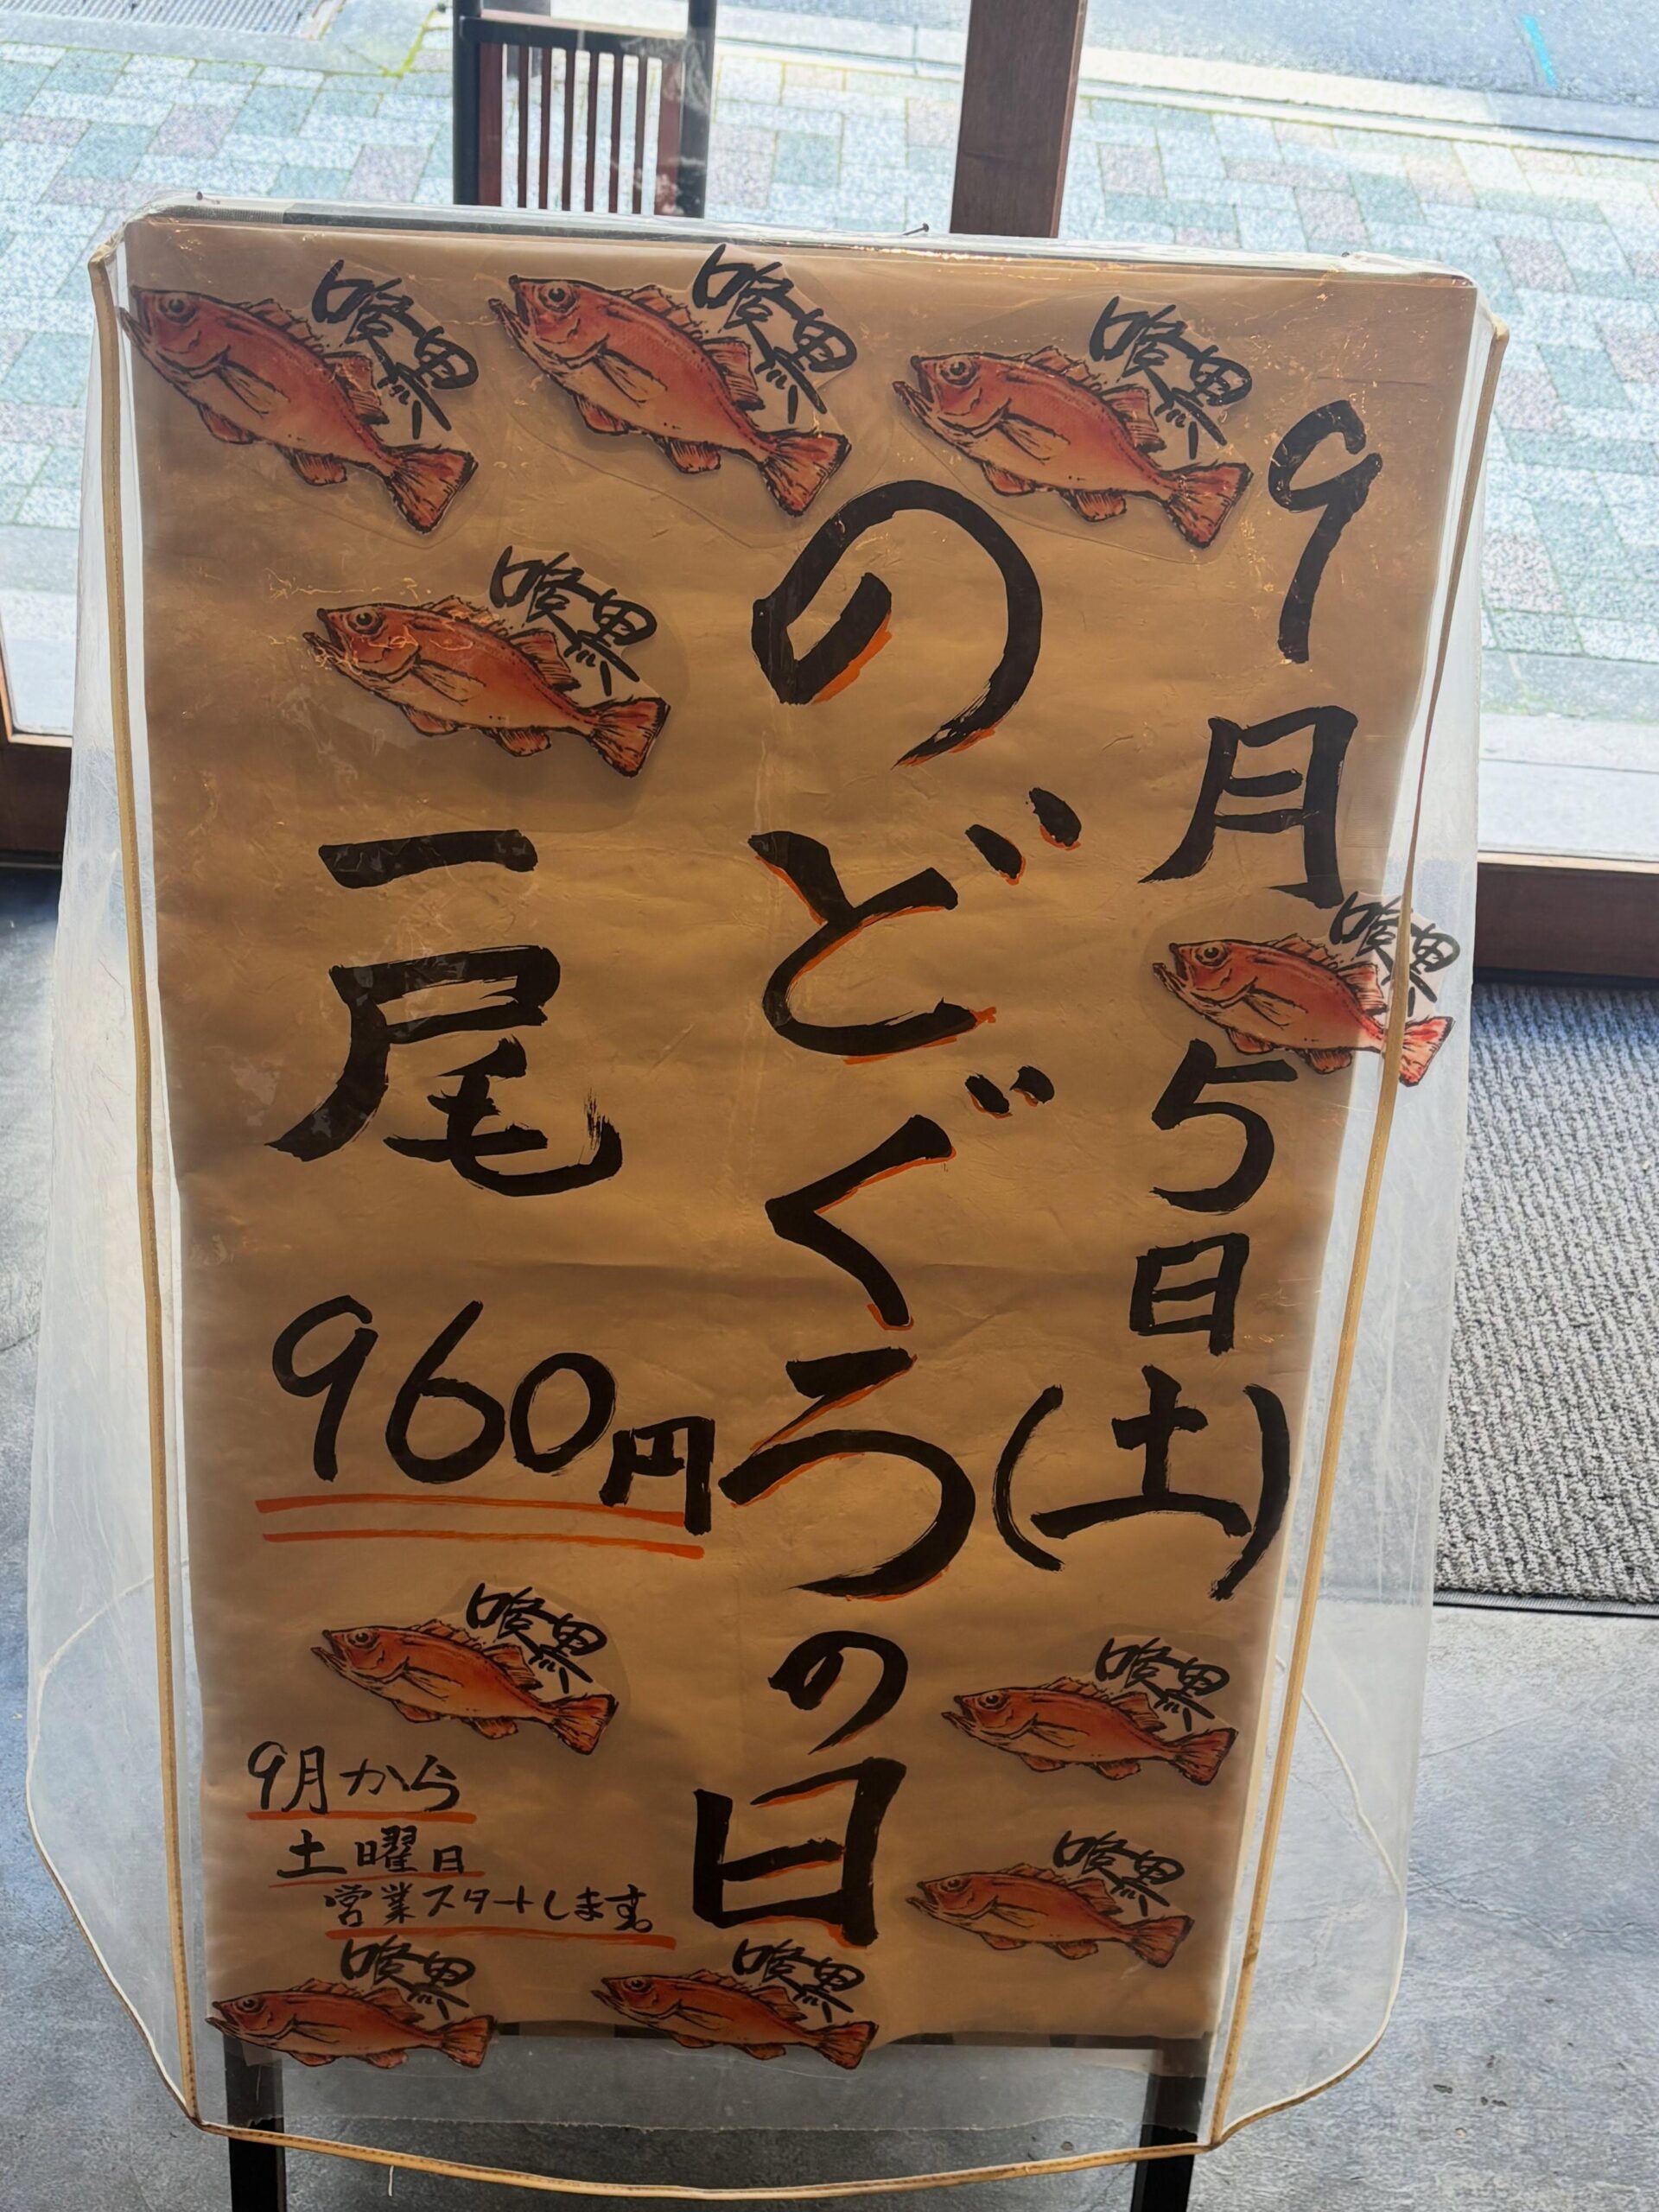 9月5日(土)
のどぐろの日
一尾
960円
9月から
土曜日
営業スタートします。
喉黒
喉黒
喉黒
喉黒
喉黒
喉黒
喉黒
喉黒
喉黒
喉黒